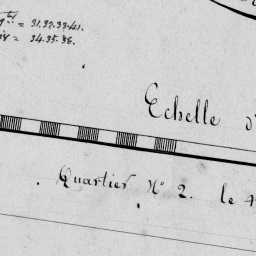 = 31.32.33.41.
= 34.35.36.
Echelle
Quartier N° 2. le